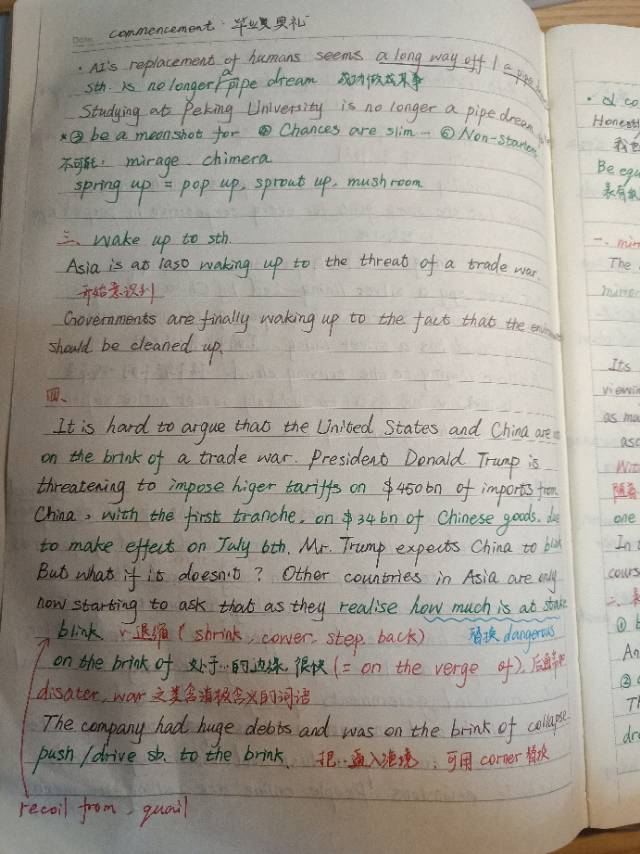 commencement 毕业典礼
· AI's replacement of humans seems a long way off / a pipe
sth. is no longer a pipe dream
Studying at Peking University is no longer a pipe dream
*② be a moonshot for ⑤ Chances are slim — ⑥ Non-starter
不可能: mirage. chimera
spring up = pop up, sprout up, mushroom
三、wake up to sth.
Asia is at laso waking up to the threat of a trade war.
开始意识到
Governments are finally waking up to the fact that the
should be cleaned up.
四、
It is hard to argue that the United States and China are
on the brink of a trade war. President Donald Trump is
threatening to impose higer tariffs on $450bn of imports from
China, with the first tranche, on $34bn of Chinese goods, due
to make effect on July 6th. Mr. Trump expects China to blink
But what if it doesn't? Other countries in Asia are only
now starting to ask that as they realise how much is at stake
blink. v 退缩 ( shrink, cower. step back) 替换 dangerous
on the brink of 处于…的边缘, 很快 (= on the verge of),
disater, war 之类含消极含义的词语
The company had huge debts and was on the brink of collapse
push / drive sb. to the brink. 把…逼入绝境; 可用 corner 替换
recoil from, quail
· al co
Honest
我也
Be equ
一、mirr
The
mirror
Its
viewin
as ma
asc
Wit
随着
one
In t
cours
二、
① b
An
②
Th
dr